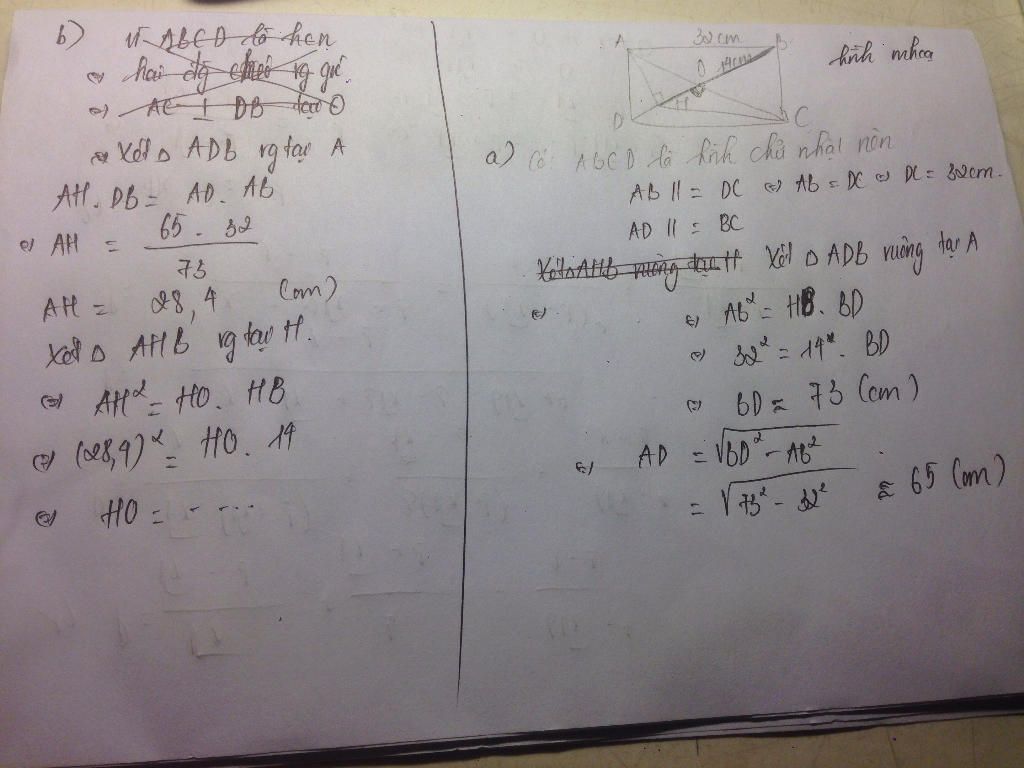 b) Vì ABCD là hcn
⇔ hai đg chéo vg góc
⇔ AC ⊥ DB tại O
⇔ Xét Δ ADB vg tại A
AH . DB = AD . AB
⇔ AH = 65 . 32 / 73
AH = 28,4 (cm)
Xét Δ AHB vg tại H.
⇔ AH² = HO . HB
⇔ (28,4)² = HO . 14
⇔ HO = - - ...
A 32cm B
O 14cm
H
D C
hình nhoạ
a) Có: ABCD là hình chữ nhật nên
AB // = DC ⇔ AB = DC ⇔ DC = 32cm.
AD // = BC
Xét Δ AHB vuông tại H Xét Δ ADB vuông tại A
⇔ ⇔ AB² = HB . BD
⇔ 32² = 14 . BD
⇔ BD ≈ 73 (cm)
⇔ AD = √BD² - AB²
= √73² - 32² ≈ 65 (cm)